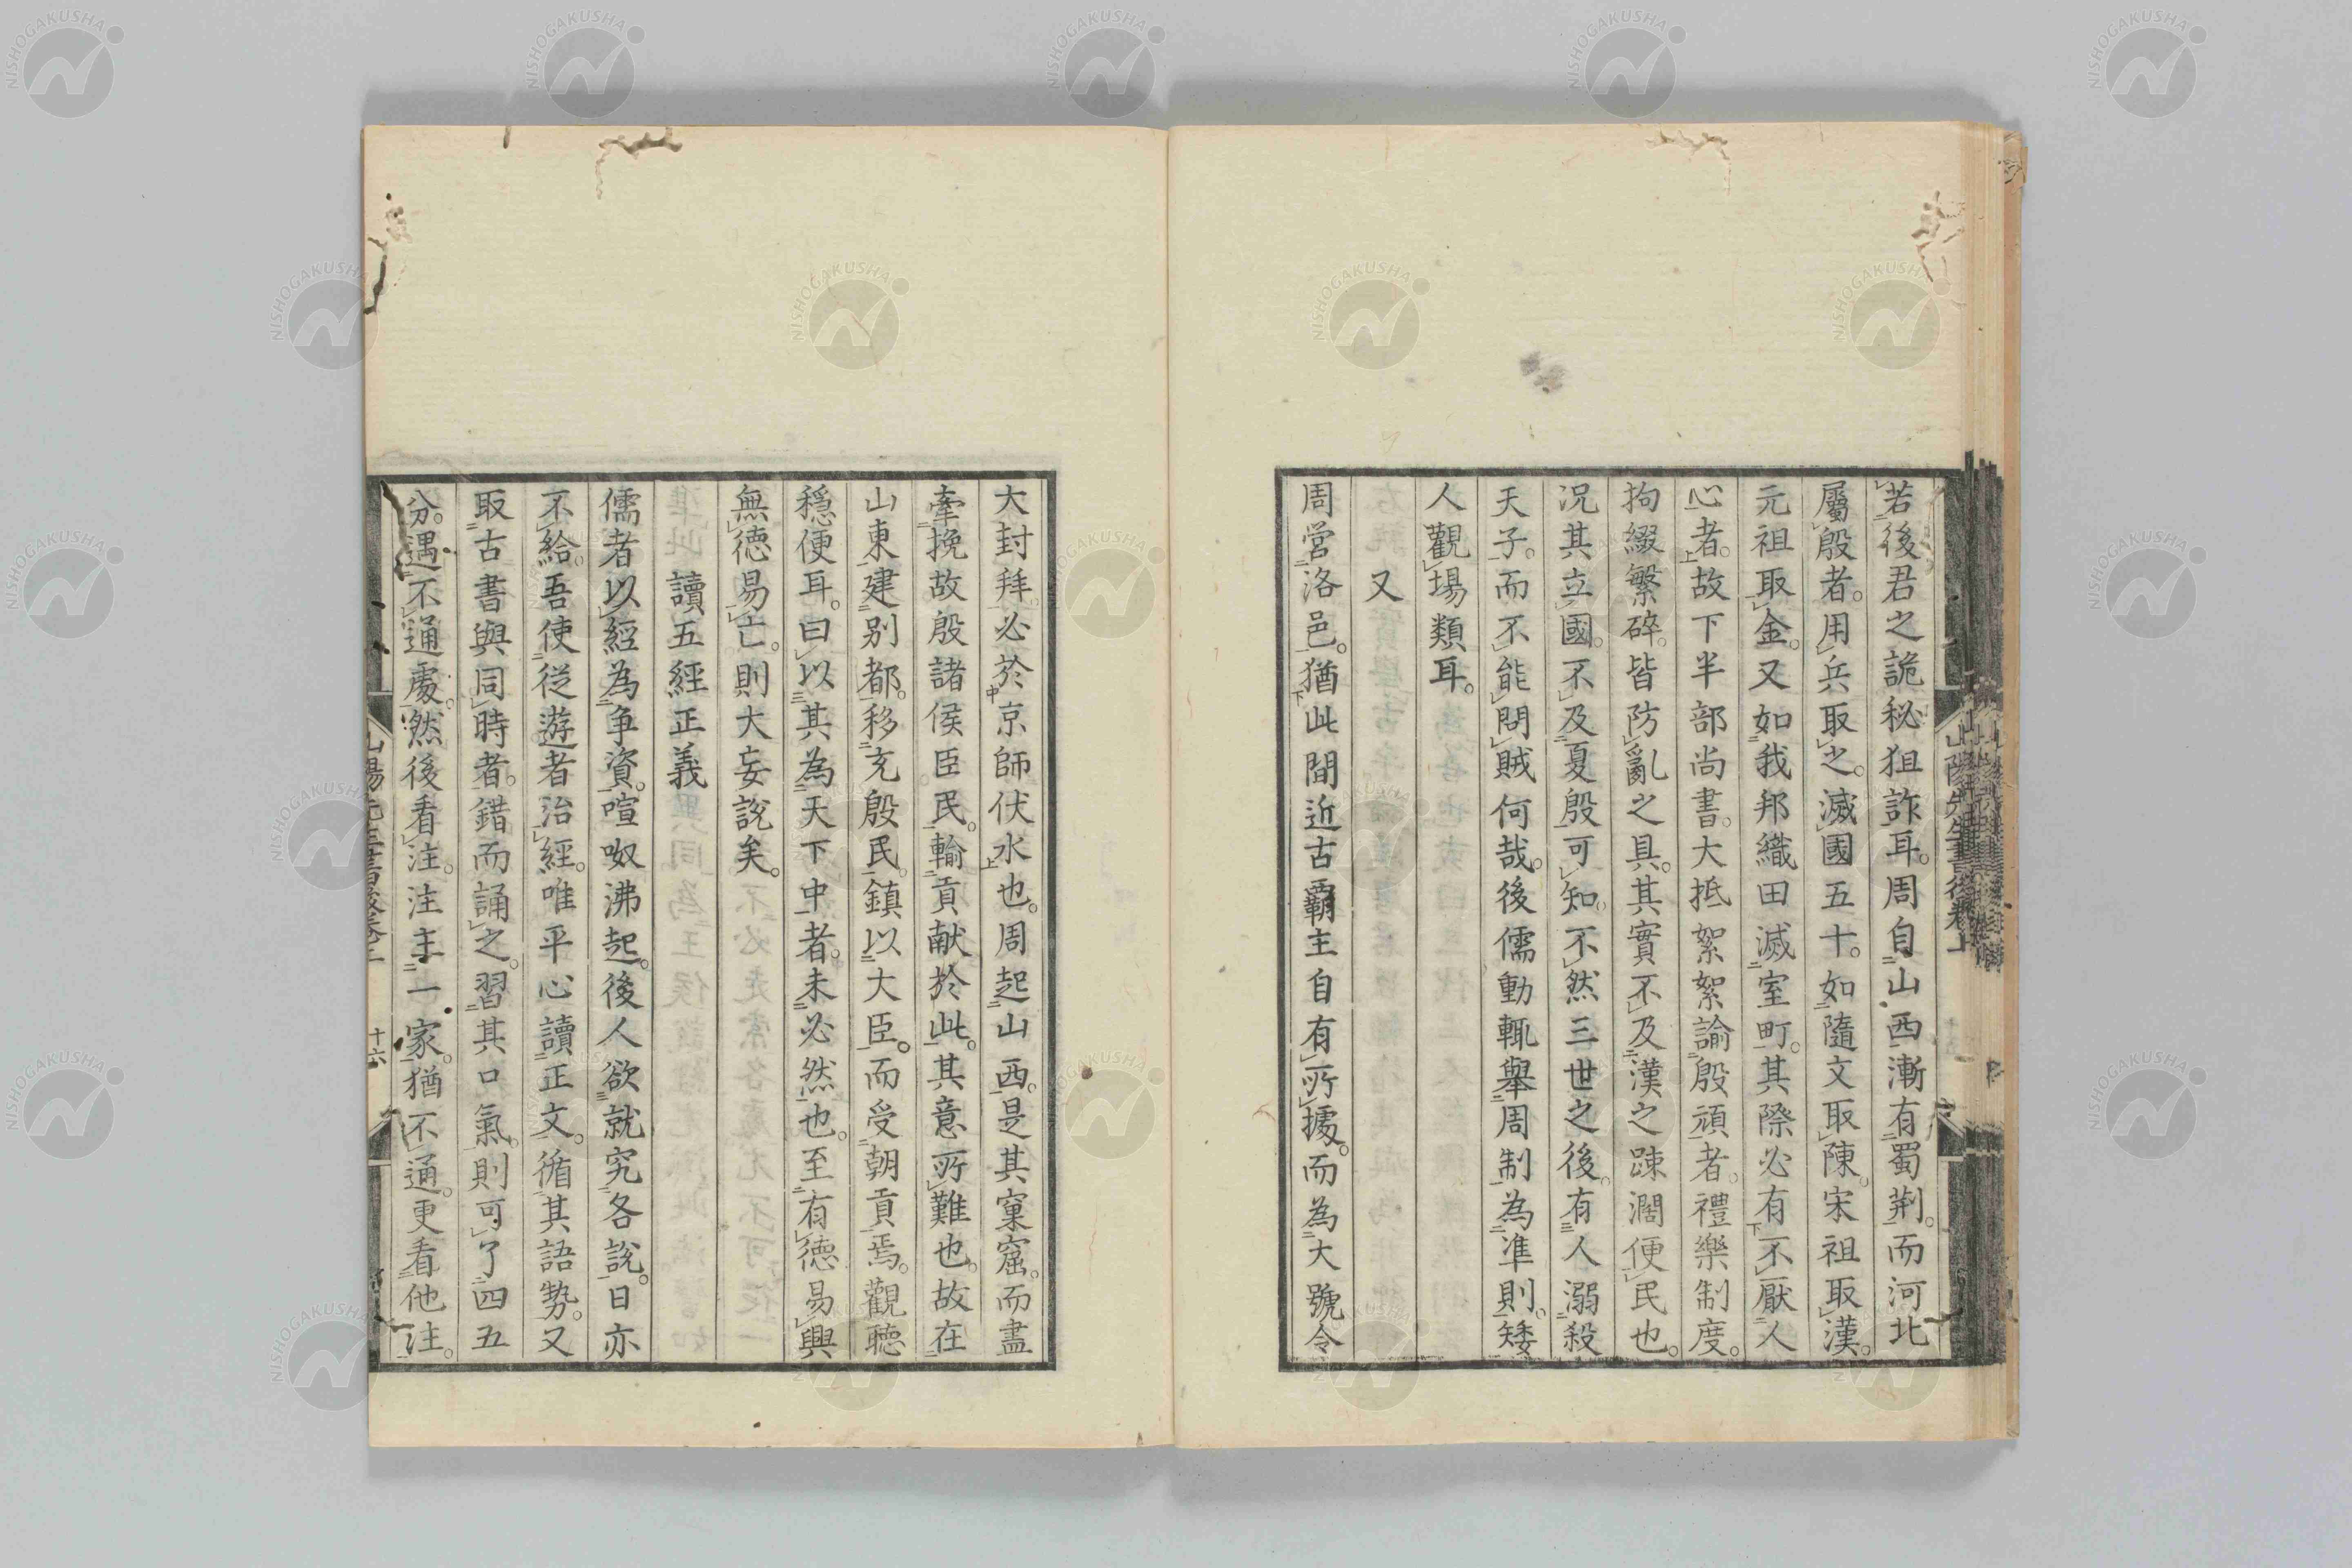 若後君之詭秘狙詐耳。周自山西漸有蜀荆。而河北
屬殷者。用兵取之。滅國五十。如隨文取陳。宋祖取漢。
元祖取金。又如我邦織田滅室町。其際必有不厭人
心者。故下半部尚書。大抵絮絮諭殷頑者。禮樂制度。
拘綴繁碎。皆防亂之具。其實不及漢之踈濶便民也。
況其立國。不及夏殷可知。不然三世之後。有人溺殺
天子。而不能問賊何哉。後儒動輒舉周制為準則。矮
人觀場類耳。
又
周営洛邑。猶此間近古覇主自有所據。而為大號令
大封拜。必於京師伏水也。周起山西。是其窠窟。而盡
牽挽故殷諸侯臣民。輸貢献於此。其意所難也。故在
山東建别都。移充殷民。鎮以大臣。而受朝貢焉。觀聴
穏便耳。曰以其為天下中者。未必然也。至有徳易興
無徳易亡。則大妄説矣。
讀五經正義
儒者以經為争資。喧呶沸起。後人欲就究各説。日亦
不給。吾使從遊者治經。唯平心讀正文。循其語勢。又
取古書與同時者。錯而誦之。習其口氣。則可了四五
分。遇不通處。然後看注。注主一家。猶不通。更看他注。
山陽先生書後卷上
十六
NISHOGAKUSHA